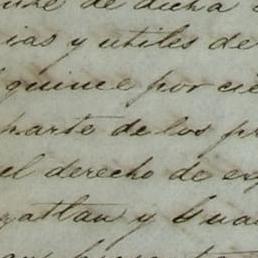 de dicha
ias y utiles de
quince por cie
parte de los pr
el derecho de ex
zatlan y Gua